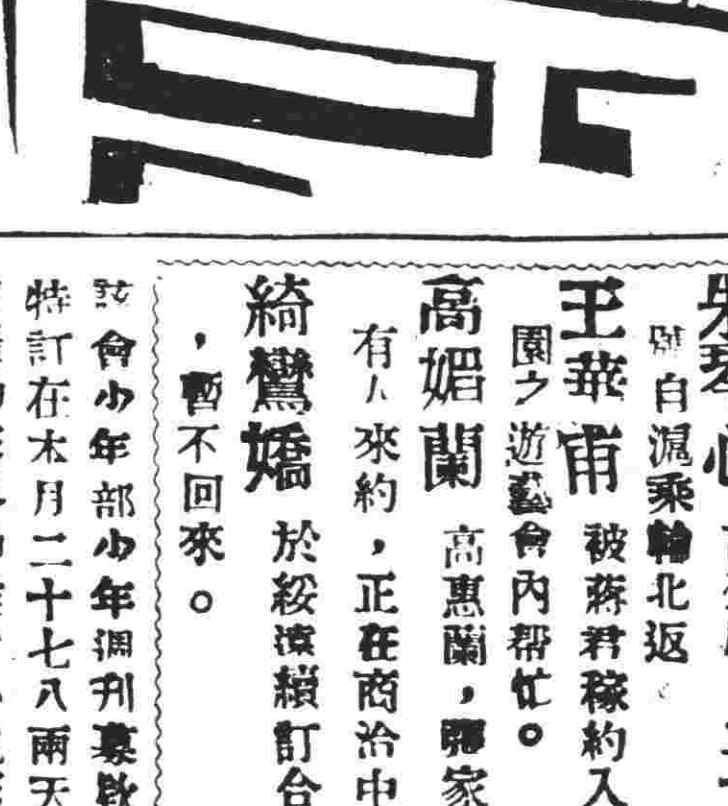 別自滬乘輪北返
王華甫 被蔣君稼約入
園之遊藝會內帮忙。
高媚蘭 高惠蘭，家
有人來約，正在商洽中
綺鸞嬌 於綏遠續訂合
，暫不回來。
該會少年部少年週刊募款
特訂在本月二十七八兩天